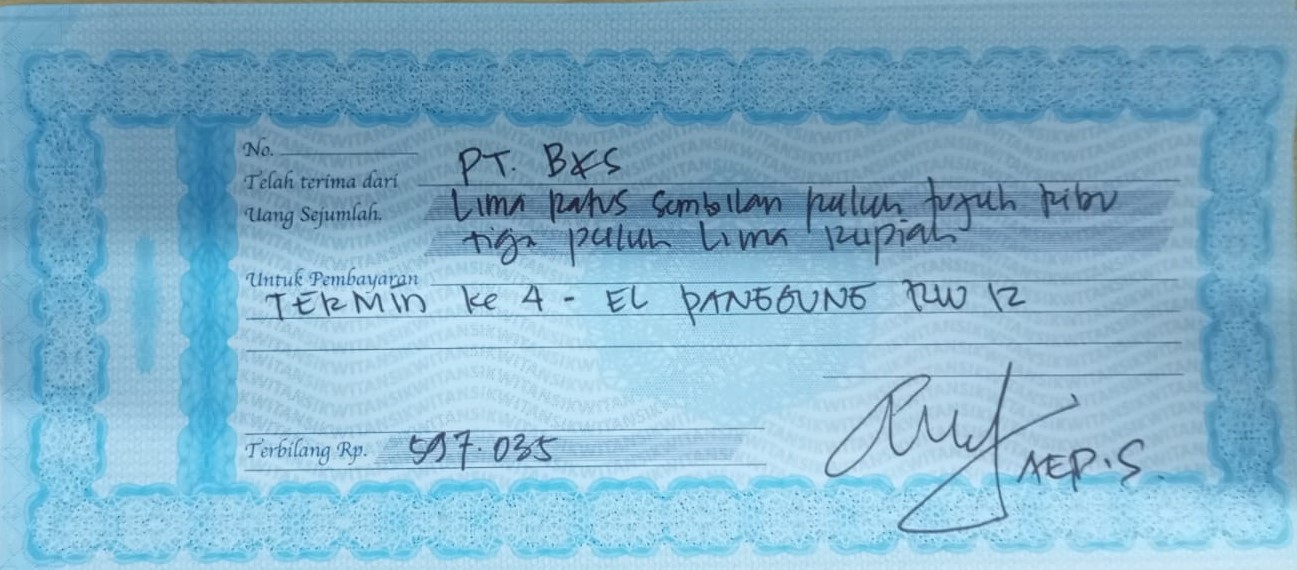 No.
Telah terima dari PT. BKS
Uang Sejumlah. Lima Ratus Sembilan puluh tujuh Ribu
tiga puluh Lima Rupiah
Untuk Pembayaran
TERMIN ke 4 - EL PANGGUNG RW 12
Terbilang Rp. 597.035
AEP.S